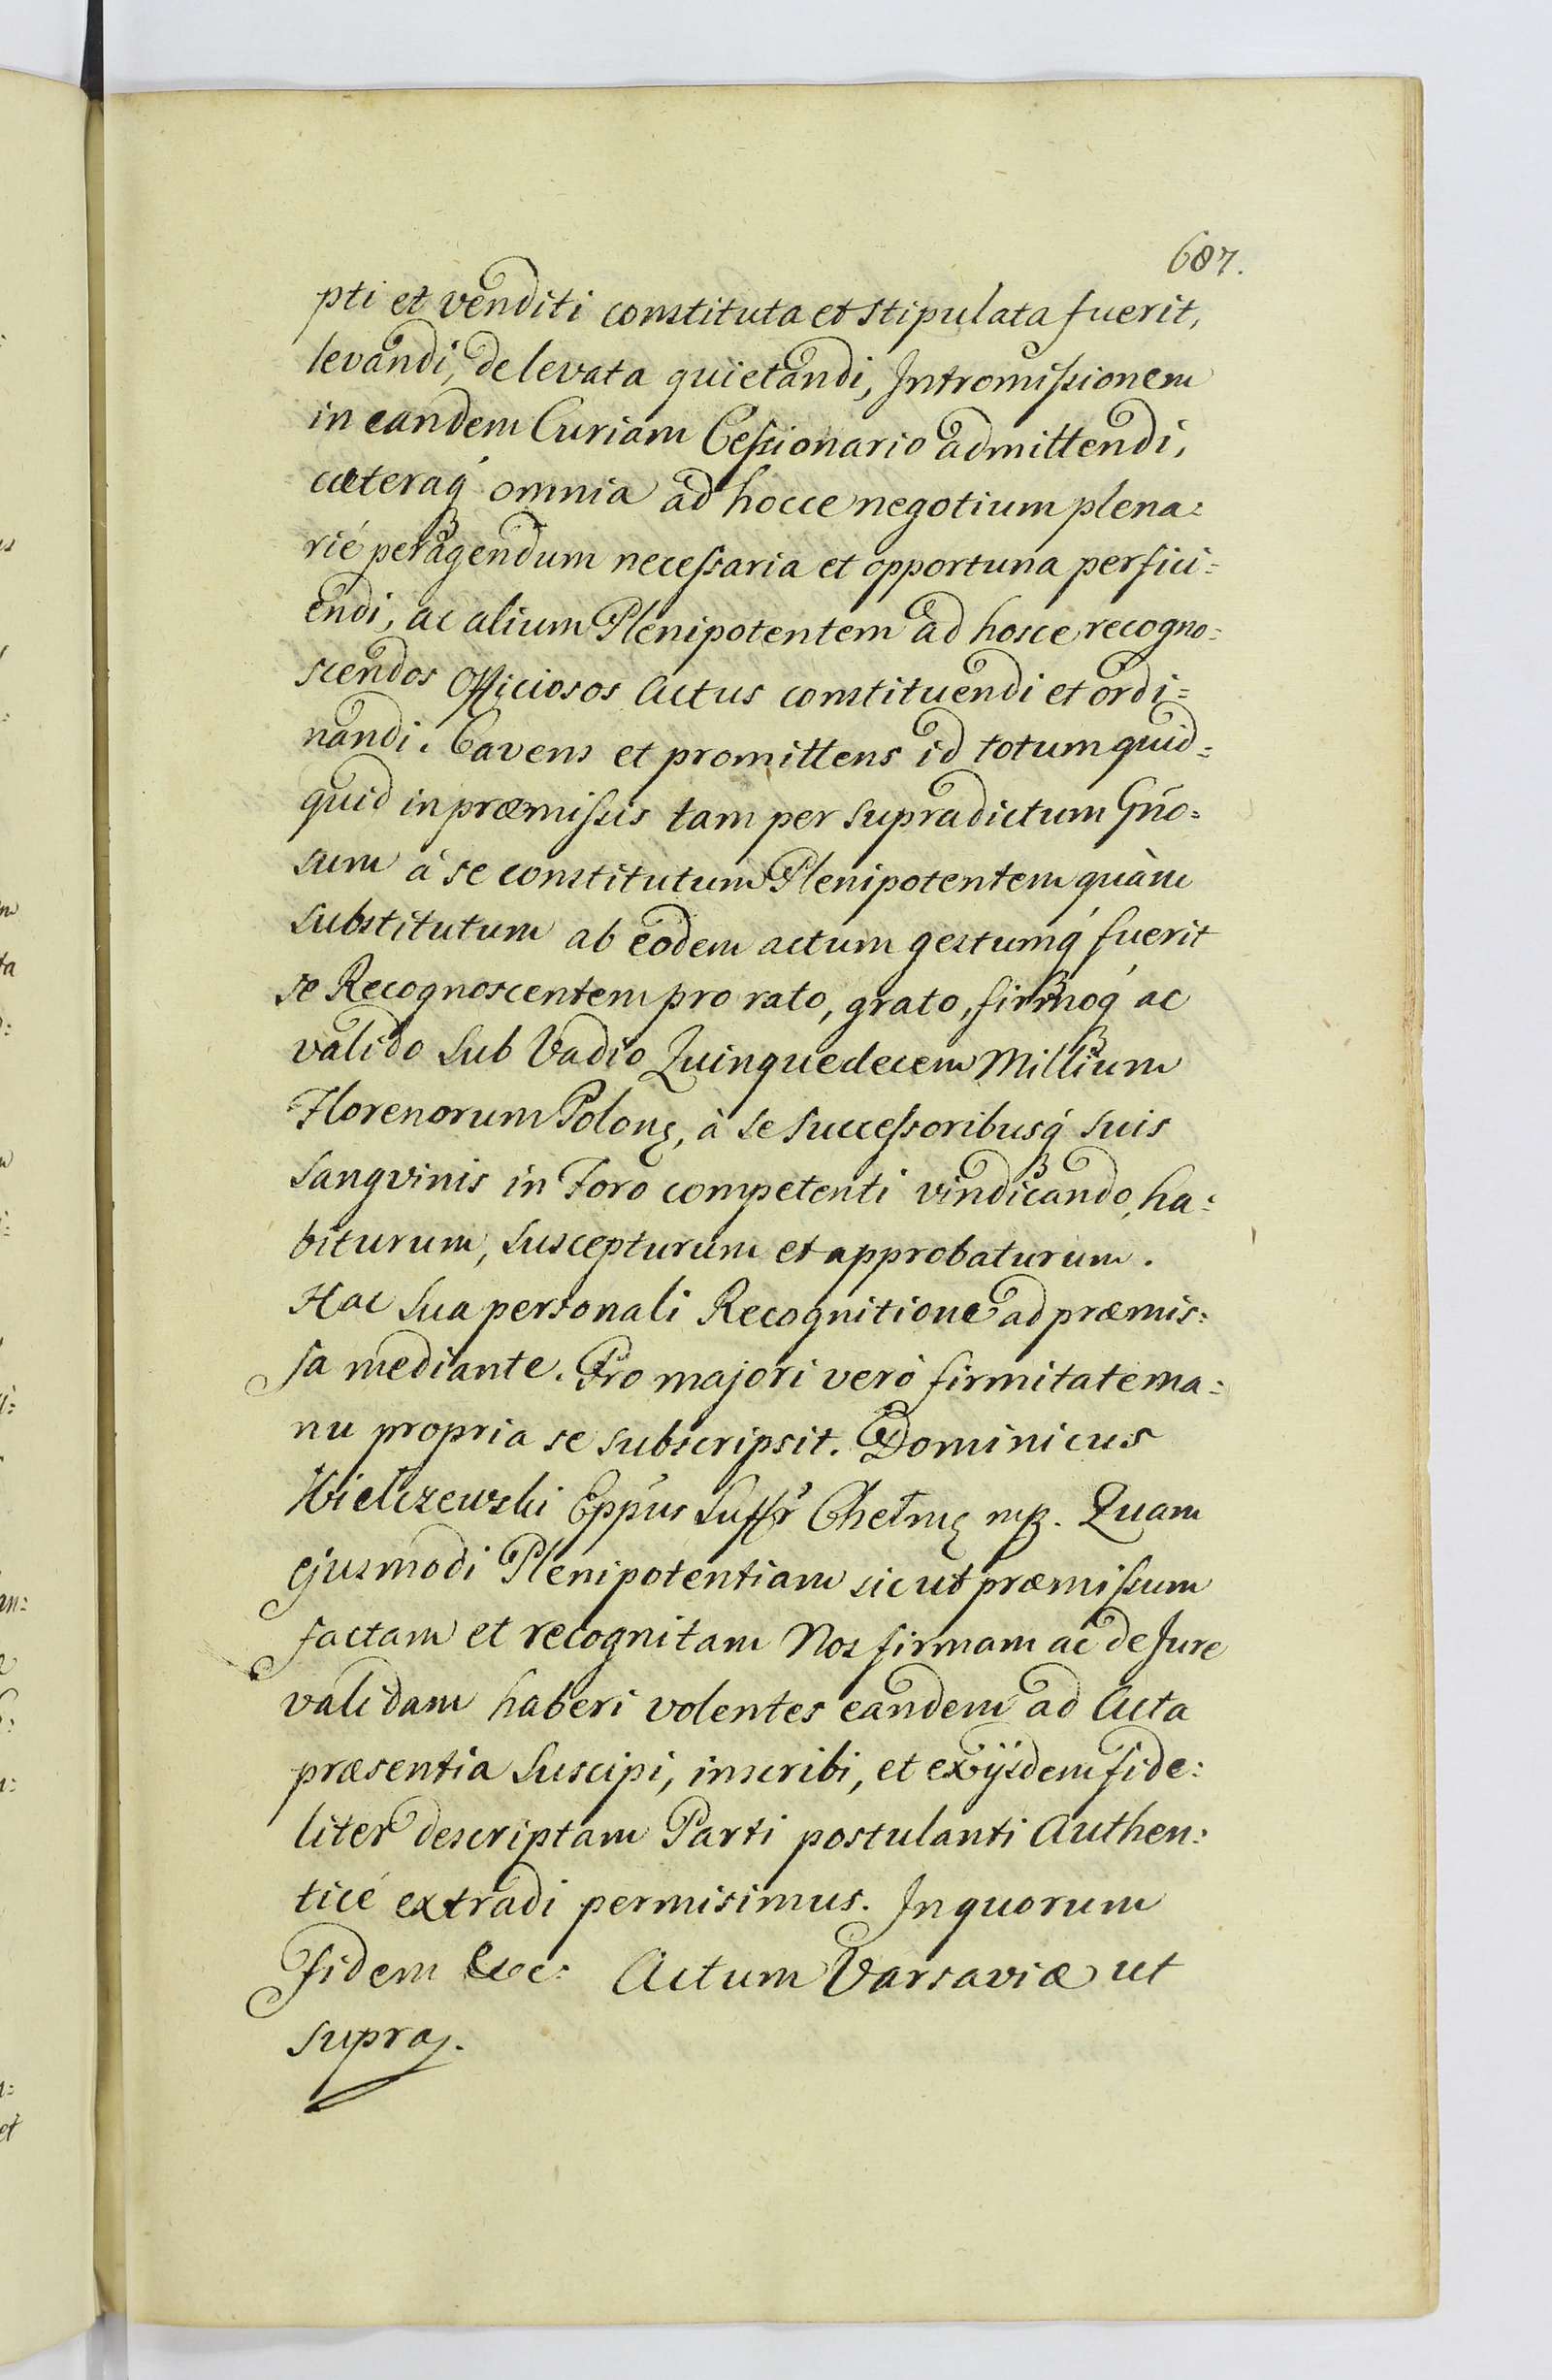 687.
pti et venditi constituta et stipulata fuerit,
levandi, de levata quietandi, Intromissionem
in eandem Curiam Cessionario admittendi,
cæteraq́ omnia ad hocce negotium plena:
rié peragendum necessaria et opportuna perfici:
endi, ac alium Plenipotentem ad hosce recogno:
scendos Officiosos Actus constituendi et ordi:
nandi. Cavens et promittens id totum quid:
quid in præmissis tam per supradictum Gño:
sum à se constitutum Plenipotentem quàm
substitutum ab eodem actum gestumq́ fuerit
se Recognoscentem pro rato, grato, firmoq́ ac
valido sub Vadio Quinquedecem Millium
Florenorum Polonę, à se successoribusq́ suis
sangvinis in Foro competenti vindicando, ha:
biturum, suscepturum et approbaturum.
Hac sua personali Recognitione ad præmis:
sa mediante. Pro majori verò firmitate ma:
nu propria se subscripsit. Dominicus
Kiełczewski Epp̃us Suffr̃ Chełmę mp. Quam
ejusmodi Plenipotentiam sicut præmissum
factam et recognitam Nos firmam ac de Jure
validam haberi volentes eandem ad Acta
præsentia suscipi, inscribi, et ex ijsdem fide:
liter descriptam Parti postulanti Authen:
ticé extradi permisimus. In quorum
Fidem &c: Actum Varsaviæ ut
supra.